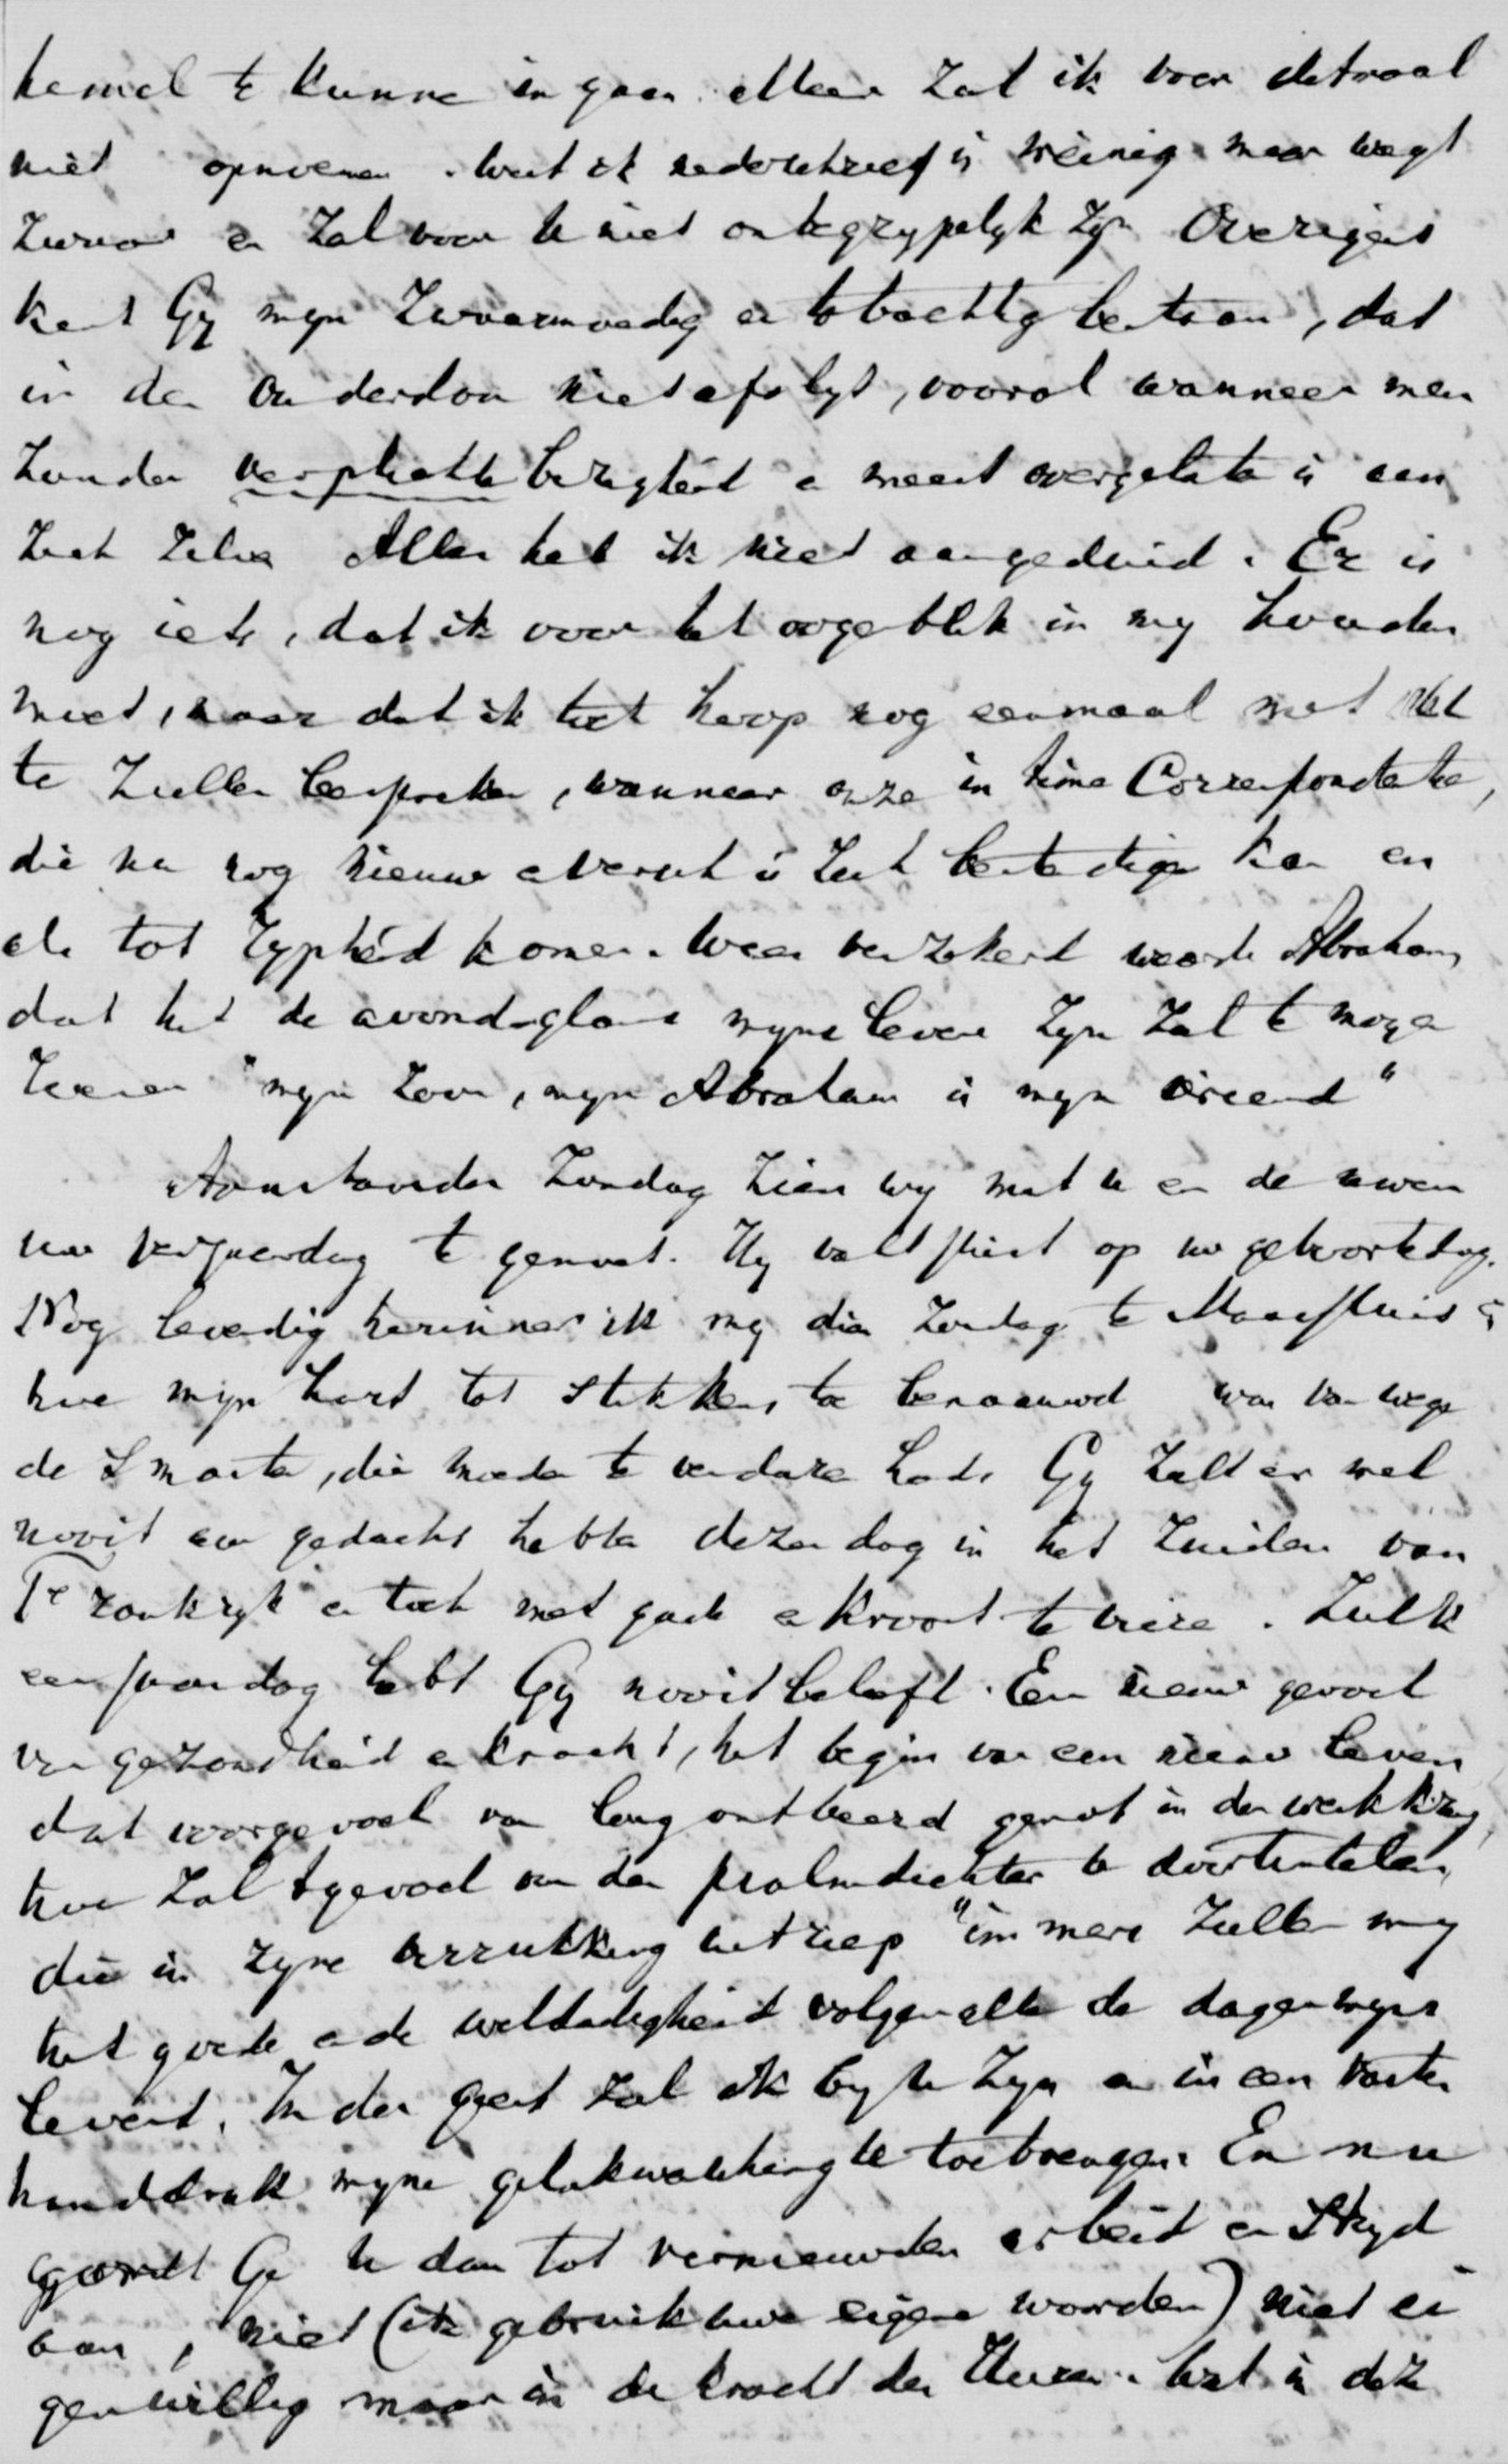 hemel te kunne in gaan. Alleen zal ik voor ditmaal
niet opnoemen. Wat ik nederschreef is weinig maar weegt
zwaar en zal voor U niet onbegrypelyk zyn Overigens
kent Gy myn zwaarmoedig en bestaan, dat
in den ouderdom niet afslyt, vooral wanneer men
zonder verplichte bezigheid en meest overgelaten is aan
zich zelven Alles heb ik niet aangeduid. Er is
nog iets, dat ik voor het oogenblik in my houden
moet, maar dat ik toch hoop nog eenmaal met U
te zullen bespreken, wanneer onze intime Correspondentie,
die nu nog nieuw en versch is zich bestendigen kan en
als tot rypheid komen. Wees verzekerd waarde Abraham,
dat het de avondglans myns levens zyn zal te mogen
"myn zoon, myn Abraham is myn vriend"
Aanstaanden Zondag zien wy met U en de uwen
uw verjaardag te gemoet. Hy valt juist op uw geboortedag.
Nog levendig herinner ik my dien Zondag te Maassluis &
hoe mijn hart tot stikkens toe benaauwd was van wege
de smarten, die moeder te verduren had. Gy zult er wel
nooit aan gedacht hebben dezen dag in het Zuiden van
Frankryk en toch met gade en kroost te vieren. Zulk
een jaardag hebt Gy nooit beleefd. Een nieuw gevoel
van gezondheid en kracht, het begin van een nieuw leven,
dat voorgevoel van lang ontbeerd genot in den werkkring,
hoe zal 't gevoel van den psalmdichter U doortintelen,
die in zyne verrukking uitriep "immers zullen my
het goede en de weldadigheid volgen alle de dagen myns
levens. In den geest zal ik by U zyn en in een vasten
handdruk myne gelukwensching U toebrengen. En nu
gordt Ge U dan tot vernieuwden arbeid en stryd
aan, niet (ik gebruik uwe eigene woorden) niet ei
genwillig maar in de kracht des Heeren. Wat is deze